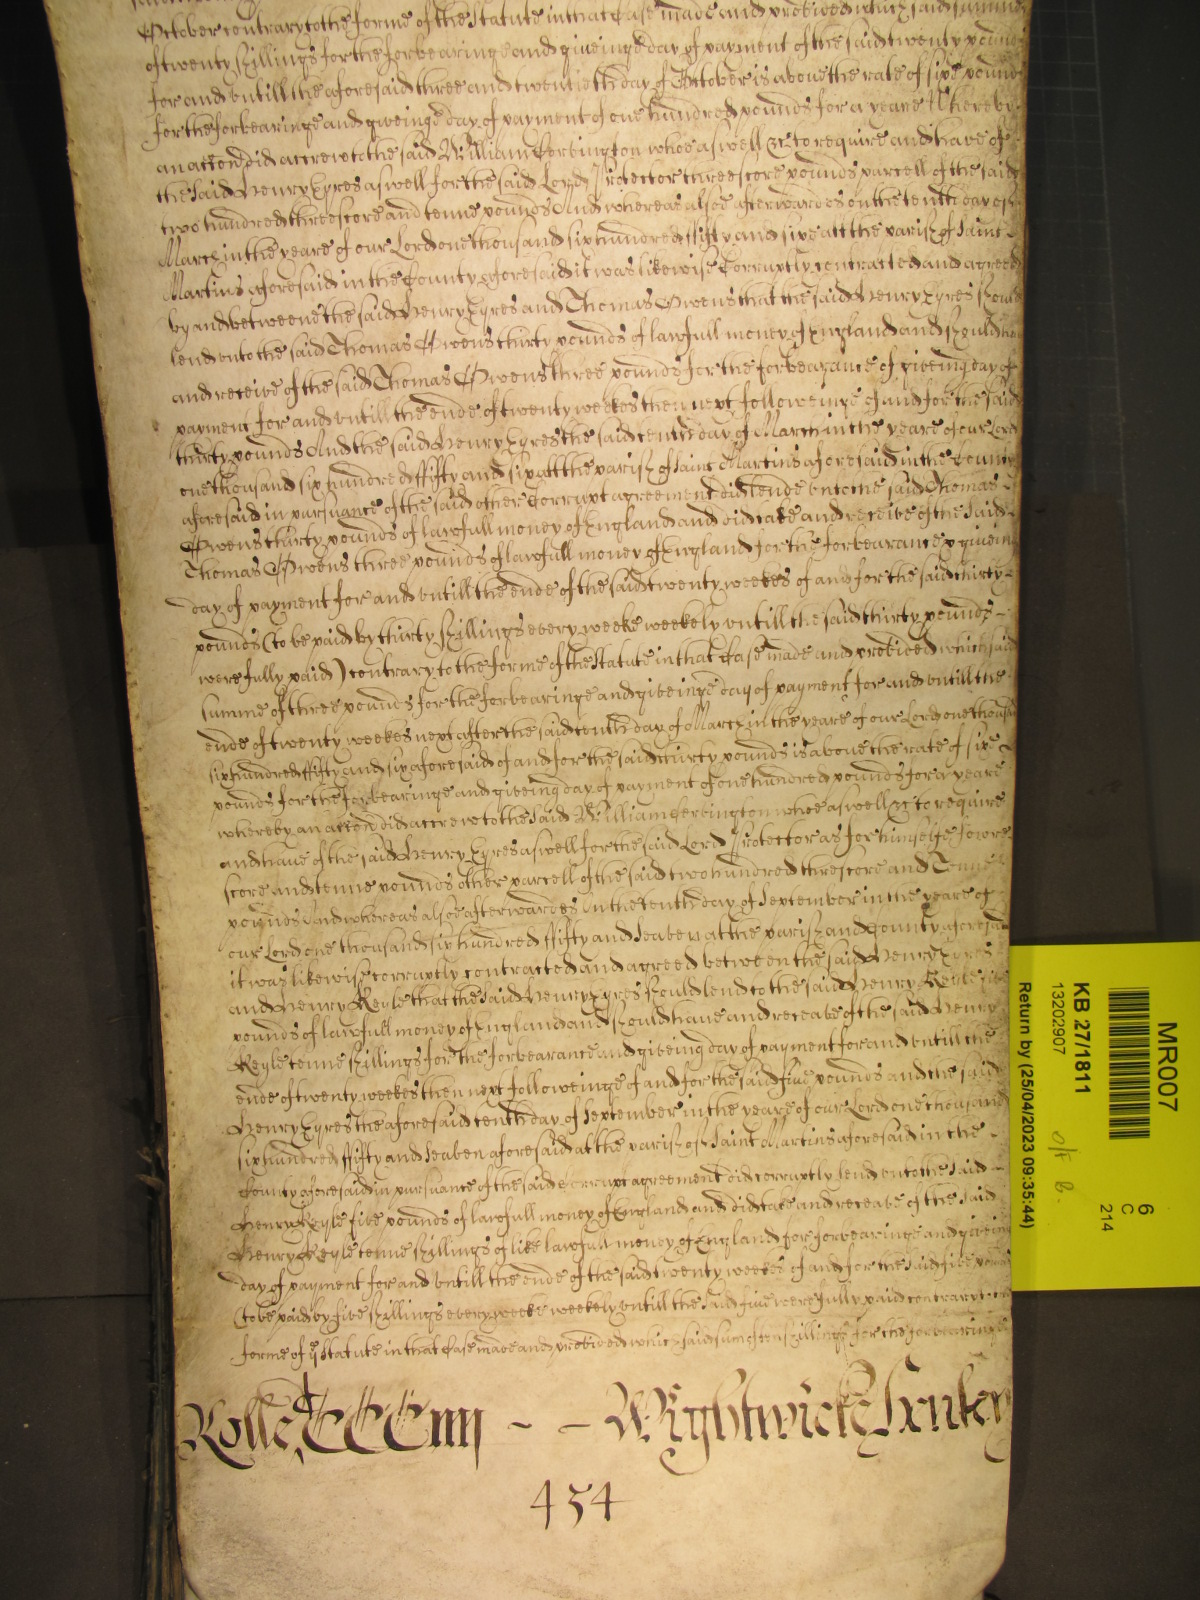 October contrary to the forme of the Statute in that Case made and provided which said summe
of twenty shillings for the forbearinge and giveinge day of payment of the said twenty pounds
for and untill the aforesaid three and twentieth day of October is above the rate of six pounds
for the forbearinge and giveinge day of payment of one hundred pounds for a yeare Whereby
an accon did accrew to the said William whoe aswell &c to require and have of
the said Henry Eyres aswell for the said Lord Protector threescore pounds parcell of the said
two hundred threescore and tenne pounds And whereas alsoe afterwardes on the tenth day of
March in the yeare of our Lord one thousand six hundred fifty and six att the parish of Saint
Martins aforesaid in the County aforesaid it was likewise Corruptly contracted and agreed
by and betweene the said Henry Eyres and Thomas Owens that the said Henry Eyres should
lend unto the said Thomas Owens thirty pounds of lawfull money of England and should
and receive of the said Thomas Owens three pounds for the forbearance of giveing day of
payment for and untill the ende of twenty weekes then next followeinge of and for the said
thirty pounds And the said Henry Eyres the said tenth day of March in the yeare of our Lord
one thousand six hundred fifty and six att the parish of Saint Martins aforesaid in the County
aforesaid in pursuance of the said other Corrupt agreement did lende unto the said Thomas
Owens thirty pounds of lawfull money of England and did take and receive of the said
Thomas Owens three pounds of lawfull money of England for the forbearance & giveing
day of payment for and untill the ende of the said twenty weekes of and for the said thirty
pounds (to be paid by thirty shillings every weeke weekely untill the said thirty pounds
were fully paid) contrary to the forme of the Statute in that Case made and provided which said
summe of three pounds for the forbearinge and giveinge day of payment for and untill the
ende of twenty weekes next after the said tenth day of March in the yeare of our Lord one thousand
six hundred fifty and six aforesaid of and for the said thirty pounds is above the rate of six
pounds for the forbearinge and giveing day of payment of one hundred pounds for a yeare
whereby an accon did accrew to the said William whoe aswell &c to require
and have of the said Henry Eyres aswell for the said Lord Protector as for himselfe fowre
score and tenne pounds other parcell of the said two hundred threscore and Tenne
pounds And whereas alsoe afterwardes on the tenth day of September in the yeare of
our Lord one thousand six hundred fifty and seaben at the parish and County aforesaid
it was likewise corruptly contracted and agreed betweene the said Henry Eyres
and Henry Keyle that the said Henry Eyres should lend to the said Henry Keyle five
pounds of lawfull money of England and should have and receave of the said Henry
Keyle tenne shillings for the forbearance and giveing day of payment for and untill the
ende of twenty weekes then next followeinge of and for the said five pounds and the said
Henry Eyres the aforesaid tenth day of September in the yeare of our Lord one thousand
six hundred fifty and seaben aforesaid at the parish of Saint Martins aforesaid in the
County aforesaid in pursuance of the said corrupt agreement did corruptly lend unto the said
Henry Keyle five pounds of lawfull money of England and did take and receave of the said
Henry Keyle tenne shillings of like lawfull money of England for forbearinge and giveing
day of payment for and untill the ende of the said twenty weekes of and for the said five pounds
(to be paid by five shillings every weeke weekely untill the said five were fully paid contrary to the
forme of ye Statute in that Case made and provided which said sum of ten shillings for the forbearinge
Rolle CCCCiiij - - Wightwicke
454
MR007
6
C
214
KB 27/1811
13202907
Return by (25/04/2023 09:35:44)